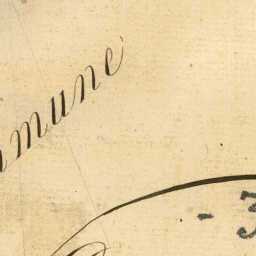 mmune
- 3